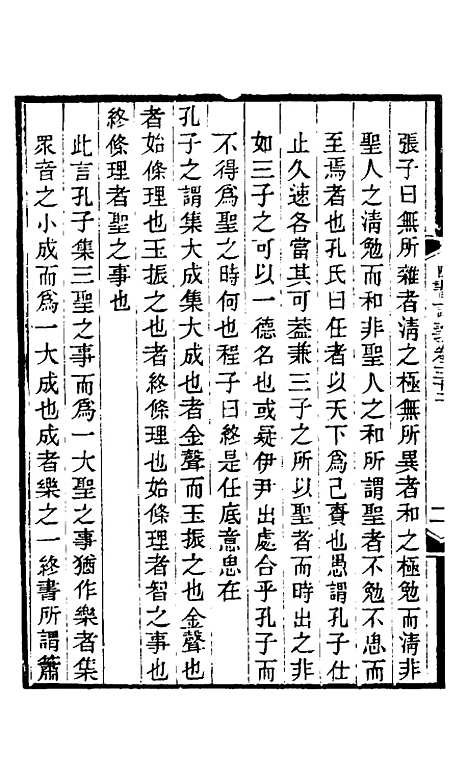 張子曰無所雜者清之極無所異者和之極勉而清非
聖人之清勉而和非聖人之和所謂聖者不勉不思而
至焉者也孔氏曰任者以天下爲己責也愚謂孔子仕
止久速各當其可葢兼三子之所以聖者而時出之非
如三子之可以一德名也或疑伊尹出處合乎孔子而
不得爲聖之時何也程子曰終是任底意思在
孔子之謂集大成集大成也者金聲而玉振之也金聲也
者始條理也玉振之也者終條理也始條理者智之事也
終條理者聖之事也
此言孔子集三聖之事而爲一大聖之事猶作樂者集
眾音之小成而爲一大成也成者樂之一終書所謂簫